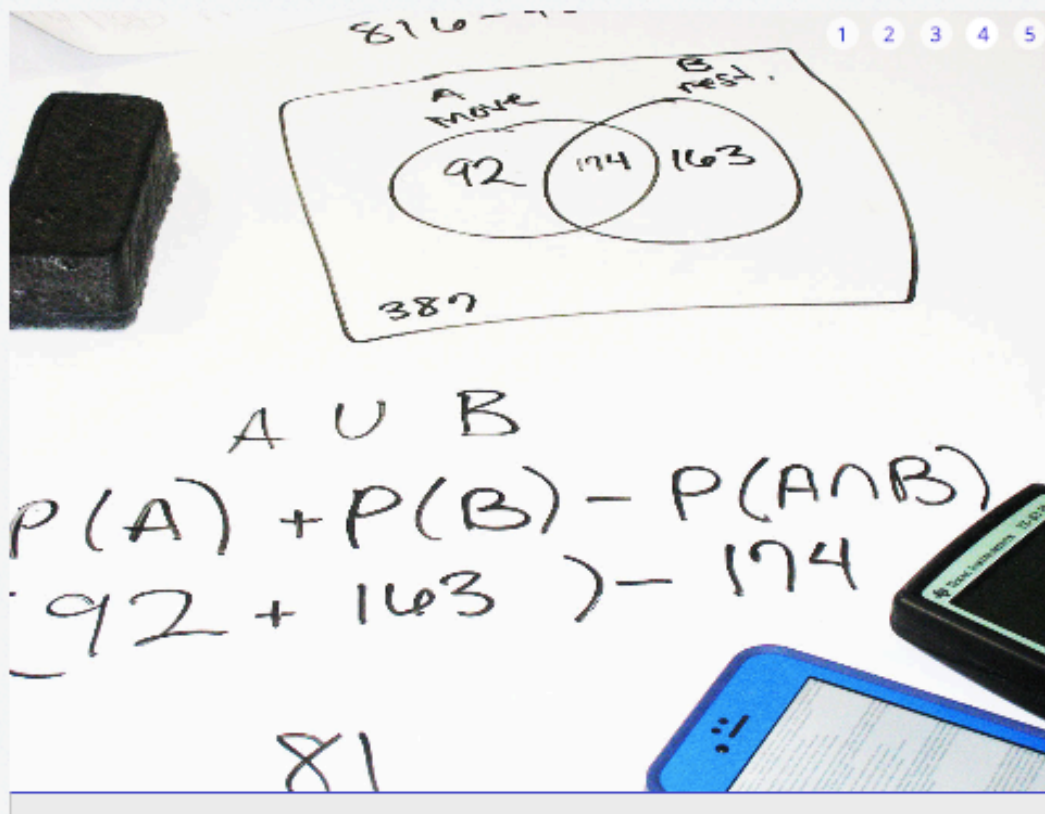 1 2 3 4 5
816-
A B
move rest.
92 174 163
387
A U B
P(A) + P(B) - P(A∩B)
(92 + 163 ) - 174
81
Texas Instruments